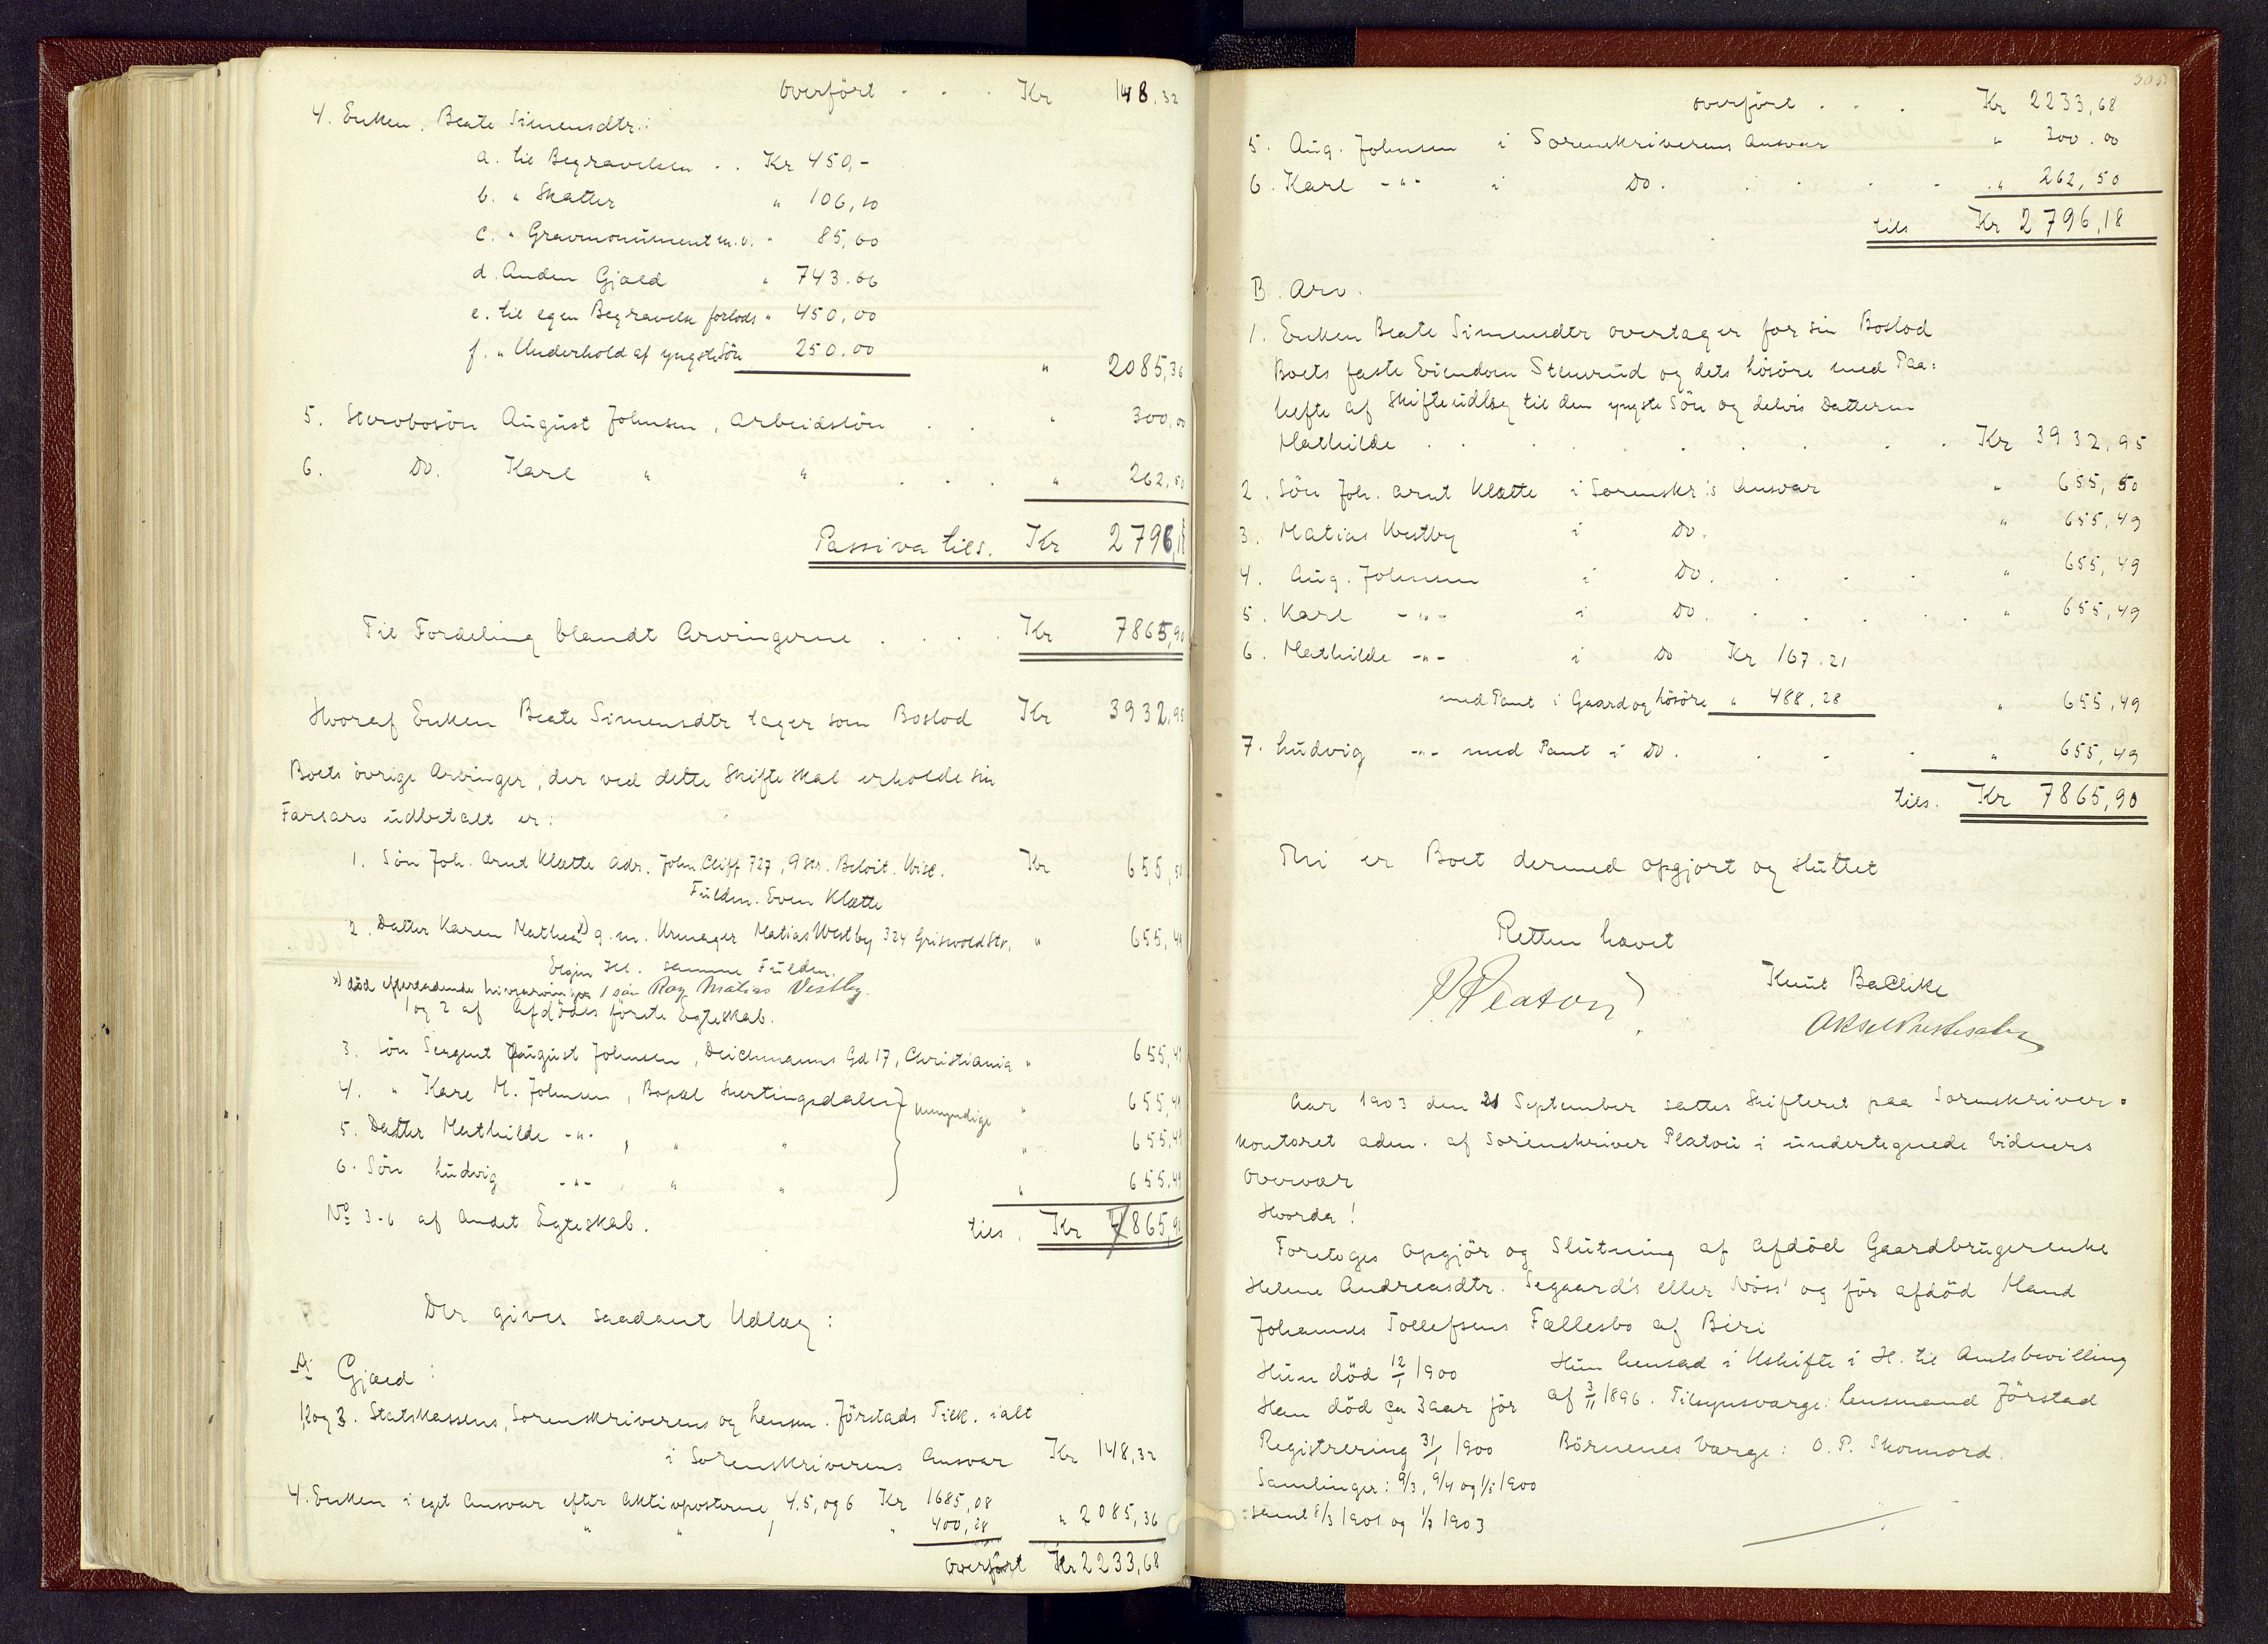 Overført . . . Kr 148,32
4. Enken, Beate Simensdtr.:
a. til Begravelsen . . Kr 450,-
b. " Skatter " 106,10
c. " Gravmonument m.v. " 85,60
d. Anden Gjæld " 743.66
e. til egen Begravelse forlods " 450,00
f. " Underhold af yngste Søn 250.00 " 2085,36
5. Stervbosøn August Johnsen, Arbeidsløn . . " 300,00
6. Do. Karl " " . . . " 262,50
Passiva tils. Kr 2796,18
Til Fordeling blandt Arvingerne . . . . Kr 7865,90
Hvoraf Enken Beate Simensdtr tager som Boslod Kr 3932,95
Boets øvrige Arvinger, der ved dette Skifte skal erholde sin
Farsarv udbetalt er:
1. Søn Joh. Arnt Klætte adr. John Cliff 727, 9 Str. Beloit. Wisc. Kr 655,50
Fuldm. Even Klætte
2. Datter Karen Mathea x) g.m. Urmager Matias Westby 324 Griswold Str. " 655,49
Elgin Ill. samme Fuldm.
x) død efterladende livsarving 1 søn Ray Matias Vestby.
1 og 2 af Afdødes første Egteskab.
3. Søn Sergent August Johnsen, Deichmanns Gd 17, Christiania " 655,49
4. " Karl M. Johnsen, Bopæl Snertingsdalen } umyndige " 655,49
5. Datter Mathilde -"- , " " " 655,49
6. Søn Ludvig -"- , " " " 655.49
No 3-6 af Andet Egteskab. tils. Kr 7865,90
Der gives saadant Udlæg:
A. Gjæld:
1,2 og 3. Statskassens, Sorenskriverens og Lensm. Jørstads Tilk. ialt
i Sorenskriverens Ansvar Kr 148,32
4. Enken i eget Ansvar efter Aktivposterne 4,5, og 6 Kr 1685,08
" " 1 " 400,28 " 2085,36
Overført Kr 2233,68
305
Overført . . . Kr 2233,68
5. Aug. Johnsen i Sorenskriverens Ansvar " 300.00
6. Karl -"- i Do. . . . . " 262,50
tils Kr 2796,18
B. Arv.
1. Enken Beate Simensdtr overtager for sin Boslod
Boets faste Eiendom Stenrud og dets Løsøre med Paa-
hefte af Skifteudlæg til den yngste Søn og delvis Datteren
Mathilde . . . . . . . . Kr 3932,95
2. Søn Joh. Arnt Klætte i Sorenskr's Ansvar " 655,50
3. Matias Westby i Do. " 655,49
4. Aug. Johnsen i Do. . . . " 655,49
5. Karl -"- i Do. . . . . . " 655,49
6. Mathilde -"- i Do Kr 167.21
med Pant i Gaard og Løsøre " 488.28 " 655,49
7. Ludvig -"- med Pant i Do. . . . " 655,49
tils. Kr 7865,90
Thi er Boet dermed opgjort og sluttet
Retten hævet
Platou Knut Baclike
Aar 1903 den 21 September sattes Skifteret paa Sorenskriver-
kontoret adm. af Sorenskriver Platou i undertegnede Vidners
Overvær
Hvorda!
Foretoges Opgjør og Slutning af Afdød Gaardbrugerenke
Helene Andreasdtr. Segaard's eller Nøss' og før afdød Mand
Johannes Tollefsens Fællesbo af Biri
Hun død 12/1 1900 Hun hensad i Uskifte i H. til Amtsbevilling
Han død ca 3 aar før af 3/11 1896. Tilsynsværge: Lensmand Jørstad
Registrering 31/1 1900 Børnenes Værge: O.P. Skonnord.
Samlinger: 9/3, 9/4 og 1/5 1900
samt 8/3 1901 og 1/7 1903